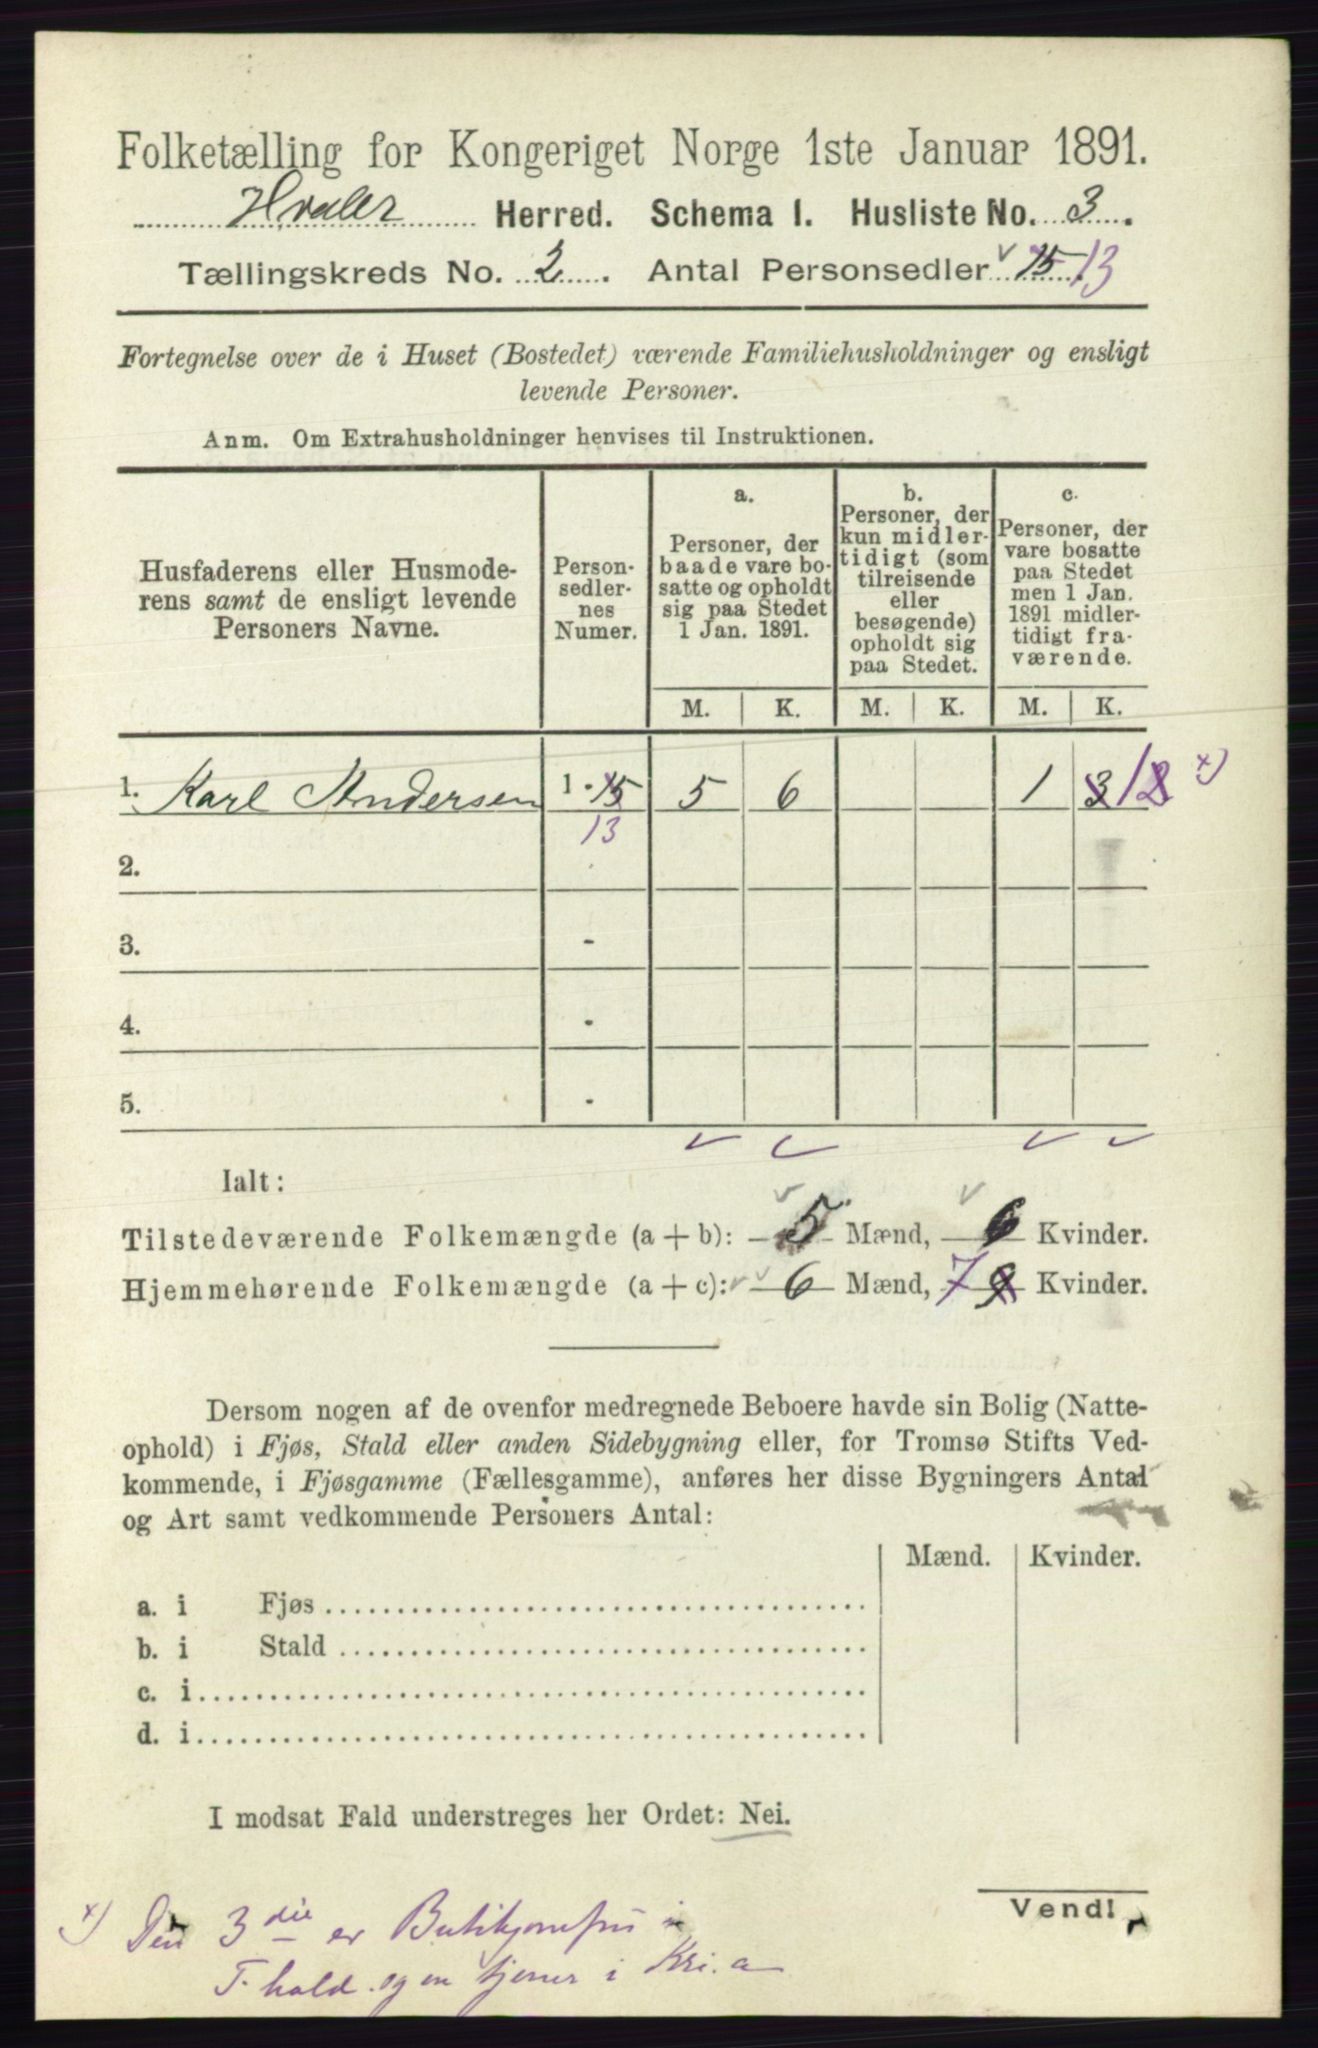 Folketælling for Kongeriget Norge 1ste Januar 1891.
Hvaler Herred. Schema 1. Husliste No. 3.
Tællingskreds No. 2. Antal Personsedler 15 13
Fortegnelse over de i Huset (Bostedet) værende Familiehusholdninger og ensligt
levende Personer.
Anm. Om Extrahusholdninger henvises til Instruktionen.
Husfaderens eller Husmode-
rens samt de ensligt levende
Personers Navne.
Person-
sedler-
nes
Numer.
a.
Personer, der
baade vare bo-
satte og opholdt
sig paa Stedet
1 Jan. 1891.
b.
Personer, der
kun midler-
tidigt (som
tilreisende
eller
besøgende)
opholdt sig
paa Stedet.
c.
Personer, der
vare bosatte
paa Stedet
men 1 Jan.
1891 midler-
tidigt fra-
værende.
M. K. M. K. M. K.
1. Karl Andersen 1 - 15 5 6 1 3 1 2 x)
13
2.
3. -
4. -
5. -
Ialt:
Tilstedeværende Folkemængde (a + b): 5 Mænd, 6 Kvinder.
Hjemmehørende Folkemængde (a + c): 6 Mænd, 7 9 Kvinder.
Dersom nogen af de ovenfor medregnede Beboere havde sin Bolig (Natte-
ophold) i Fjøs, Stald eller anden Sidebygning eller, for Tromsø Stifts Ved-
kommende, i Fjøsgamme (Fællesgamme), anføres her disse Bygningers Antal
og Art samt vedkommende Personers Antal:
Mænd. Kvinder.
a. i Fjøs
b. i Stald
c. i
d. i
I modsat Fald understreges her Ordet: Nei.
Vend!
x) Den 3die er Butikjomfru i
F.hald. og en tjener i Kri.a